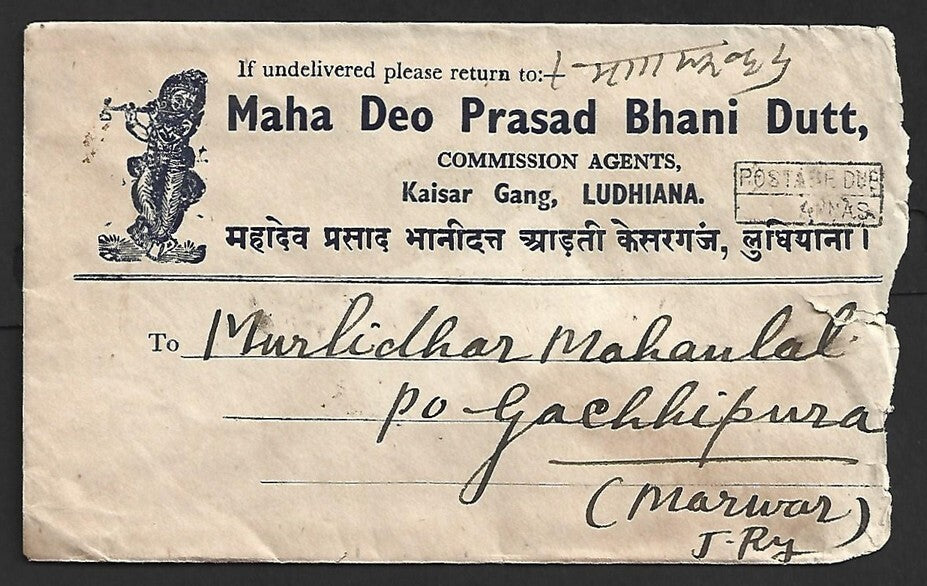 If undelivered please return to:-
Maha Deo Prasad Bhani Dutt,
COMMISSION AGENTS,
Kaisar Gang, LUDHIANA.
महादेव प्रसाद भानीदत्त आड़ती केसरगजं, लुधियाना।
POSTAGE DUE
ANNAS
To Murlidhar Mohanlal
PO Gachhipura
(Marwar)
J-Ry